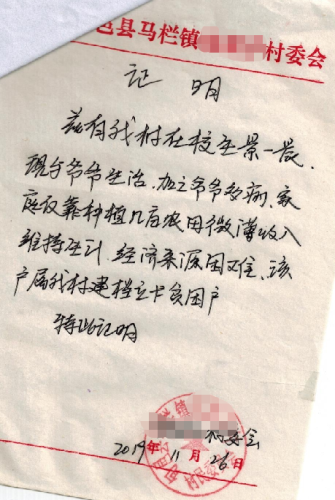 邑县马栏镇 村委会
证 明
兹有我村在校生景一最,
现与爷爷生活,加之爷爷多病,家
庭仅靠种植几亩农田微薄收入
维持生计,经济来源困难,该
户属我村建档立卡贫困户
特此证明
村委会
2019年11月26日